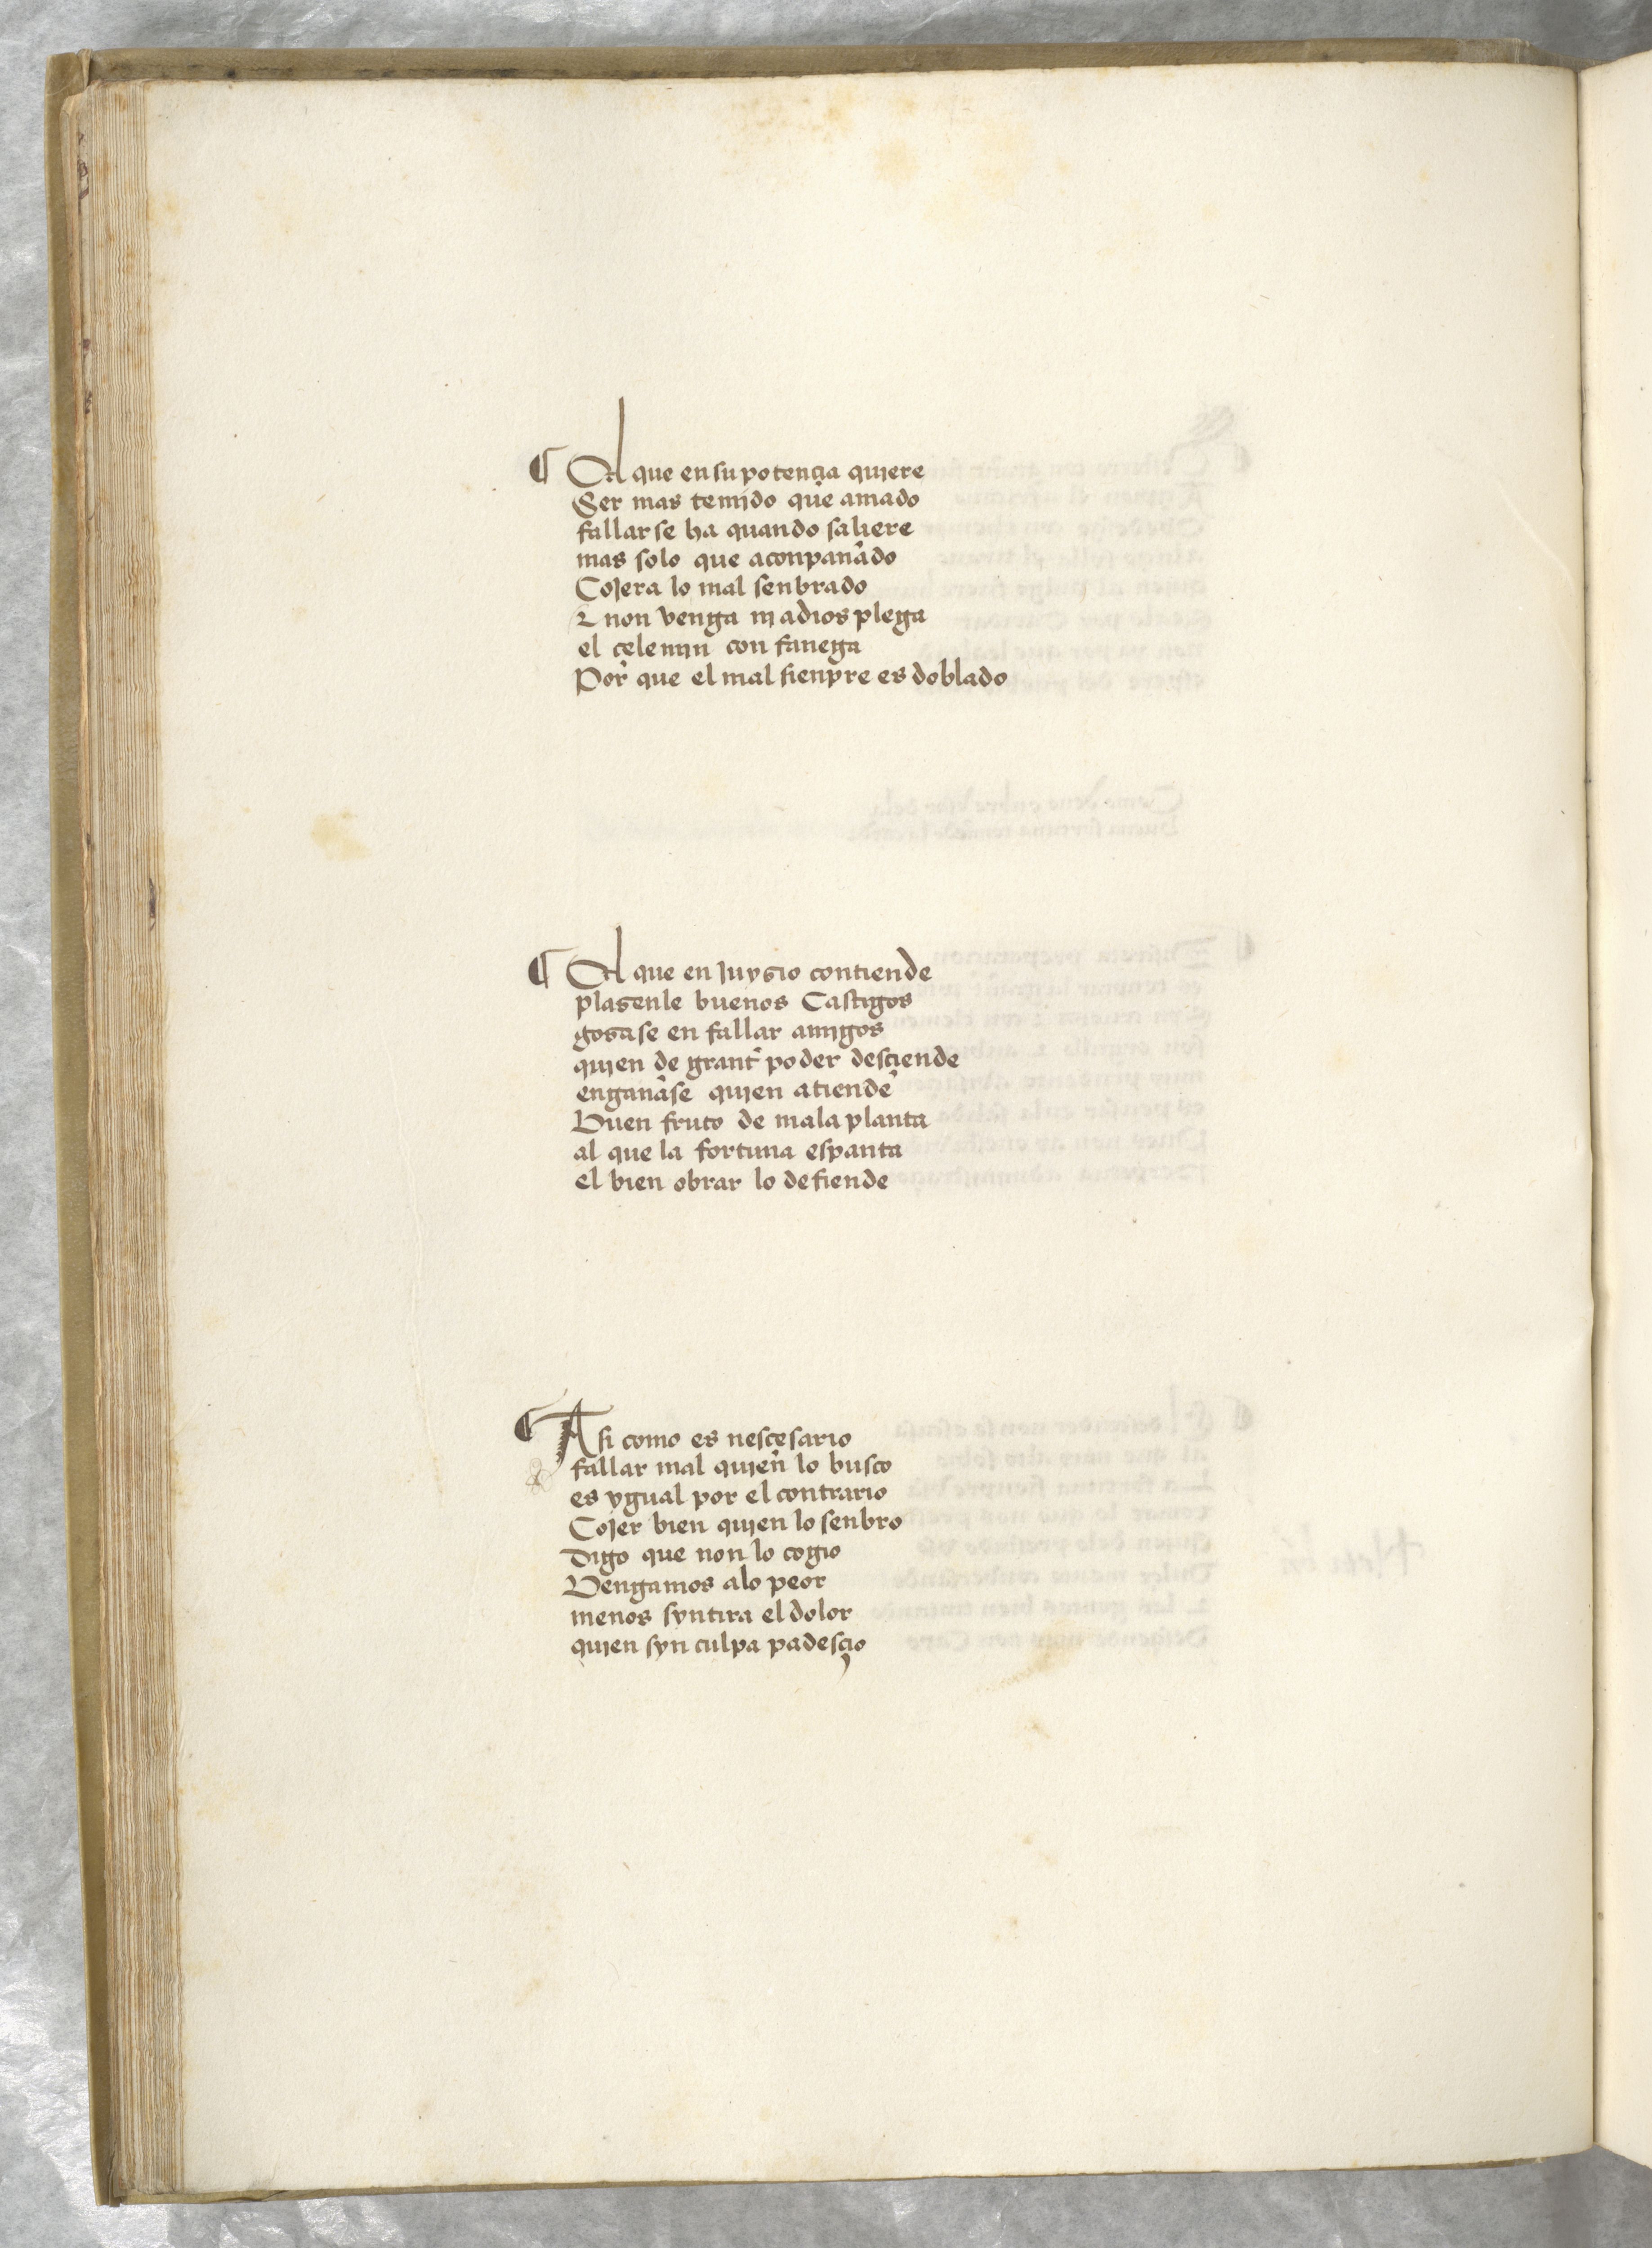 ¶ Al que en su potençia quiere
Ser mas temido que amado
fallar se ha quando saliere
mas solo que aconpanado
Cojera lo mal senbrado
⁊ non venga nj a dios plega
el celemjn con fanega
Por que el mal sienpre es doblado
¶ Al que en Juyzio contiende
plazenle buenos Castigos
gozase en fallar amjgos
quien de grant poder desciende
enganase quien atiende
Buen fruto de mala planta
al que la fortuna espanta
el bien obrar lo defiende
¶ Asi como es nescesario
fallar mal quien lo busco
es ygual por el contrario
Cojer bien quien lo senbro
Digo que non lo cogio
Vengamos a lo peor
menos syntira el dolor
quien syn culpa padesçio